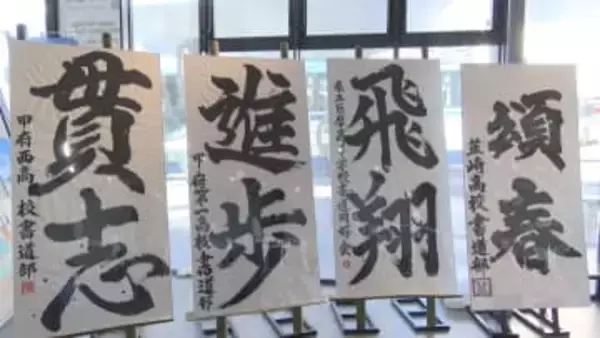 貫志
甲府西高校書道部
進歩
甲府第一高校書道部
飛翔
頌春
韮崎高校書道部